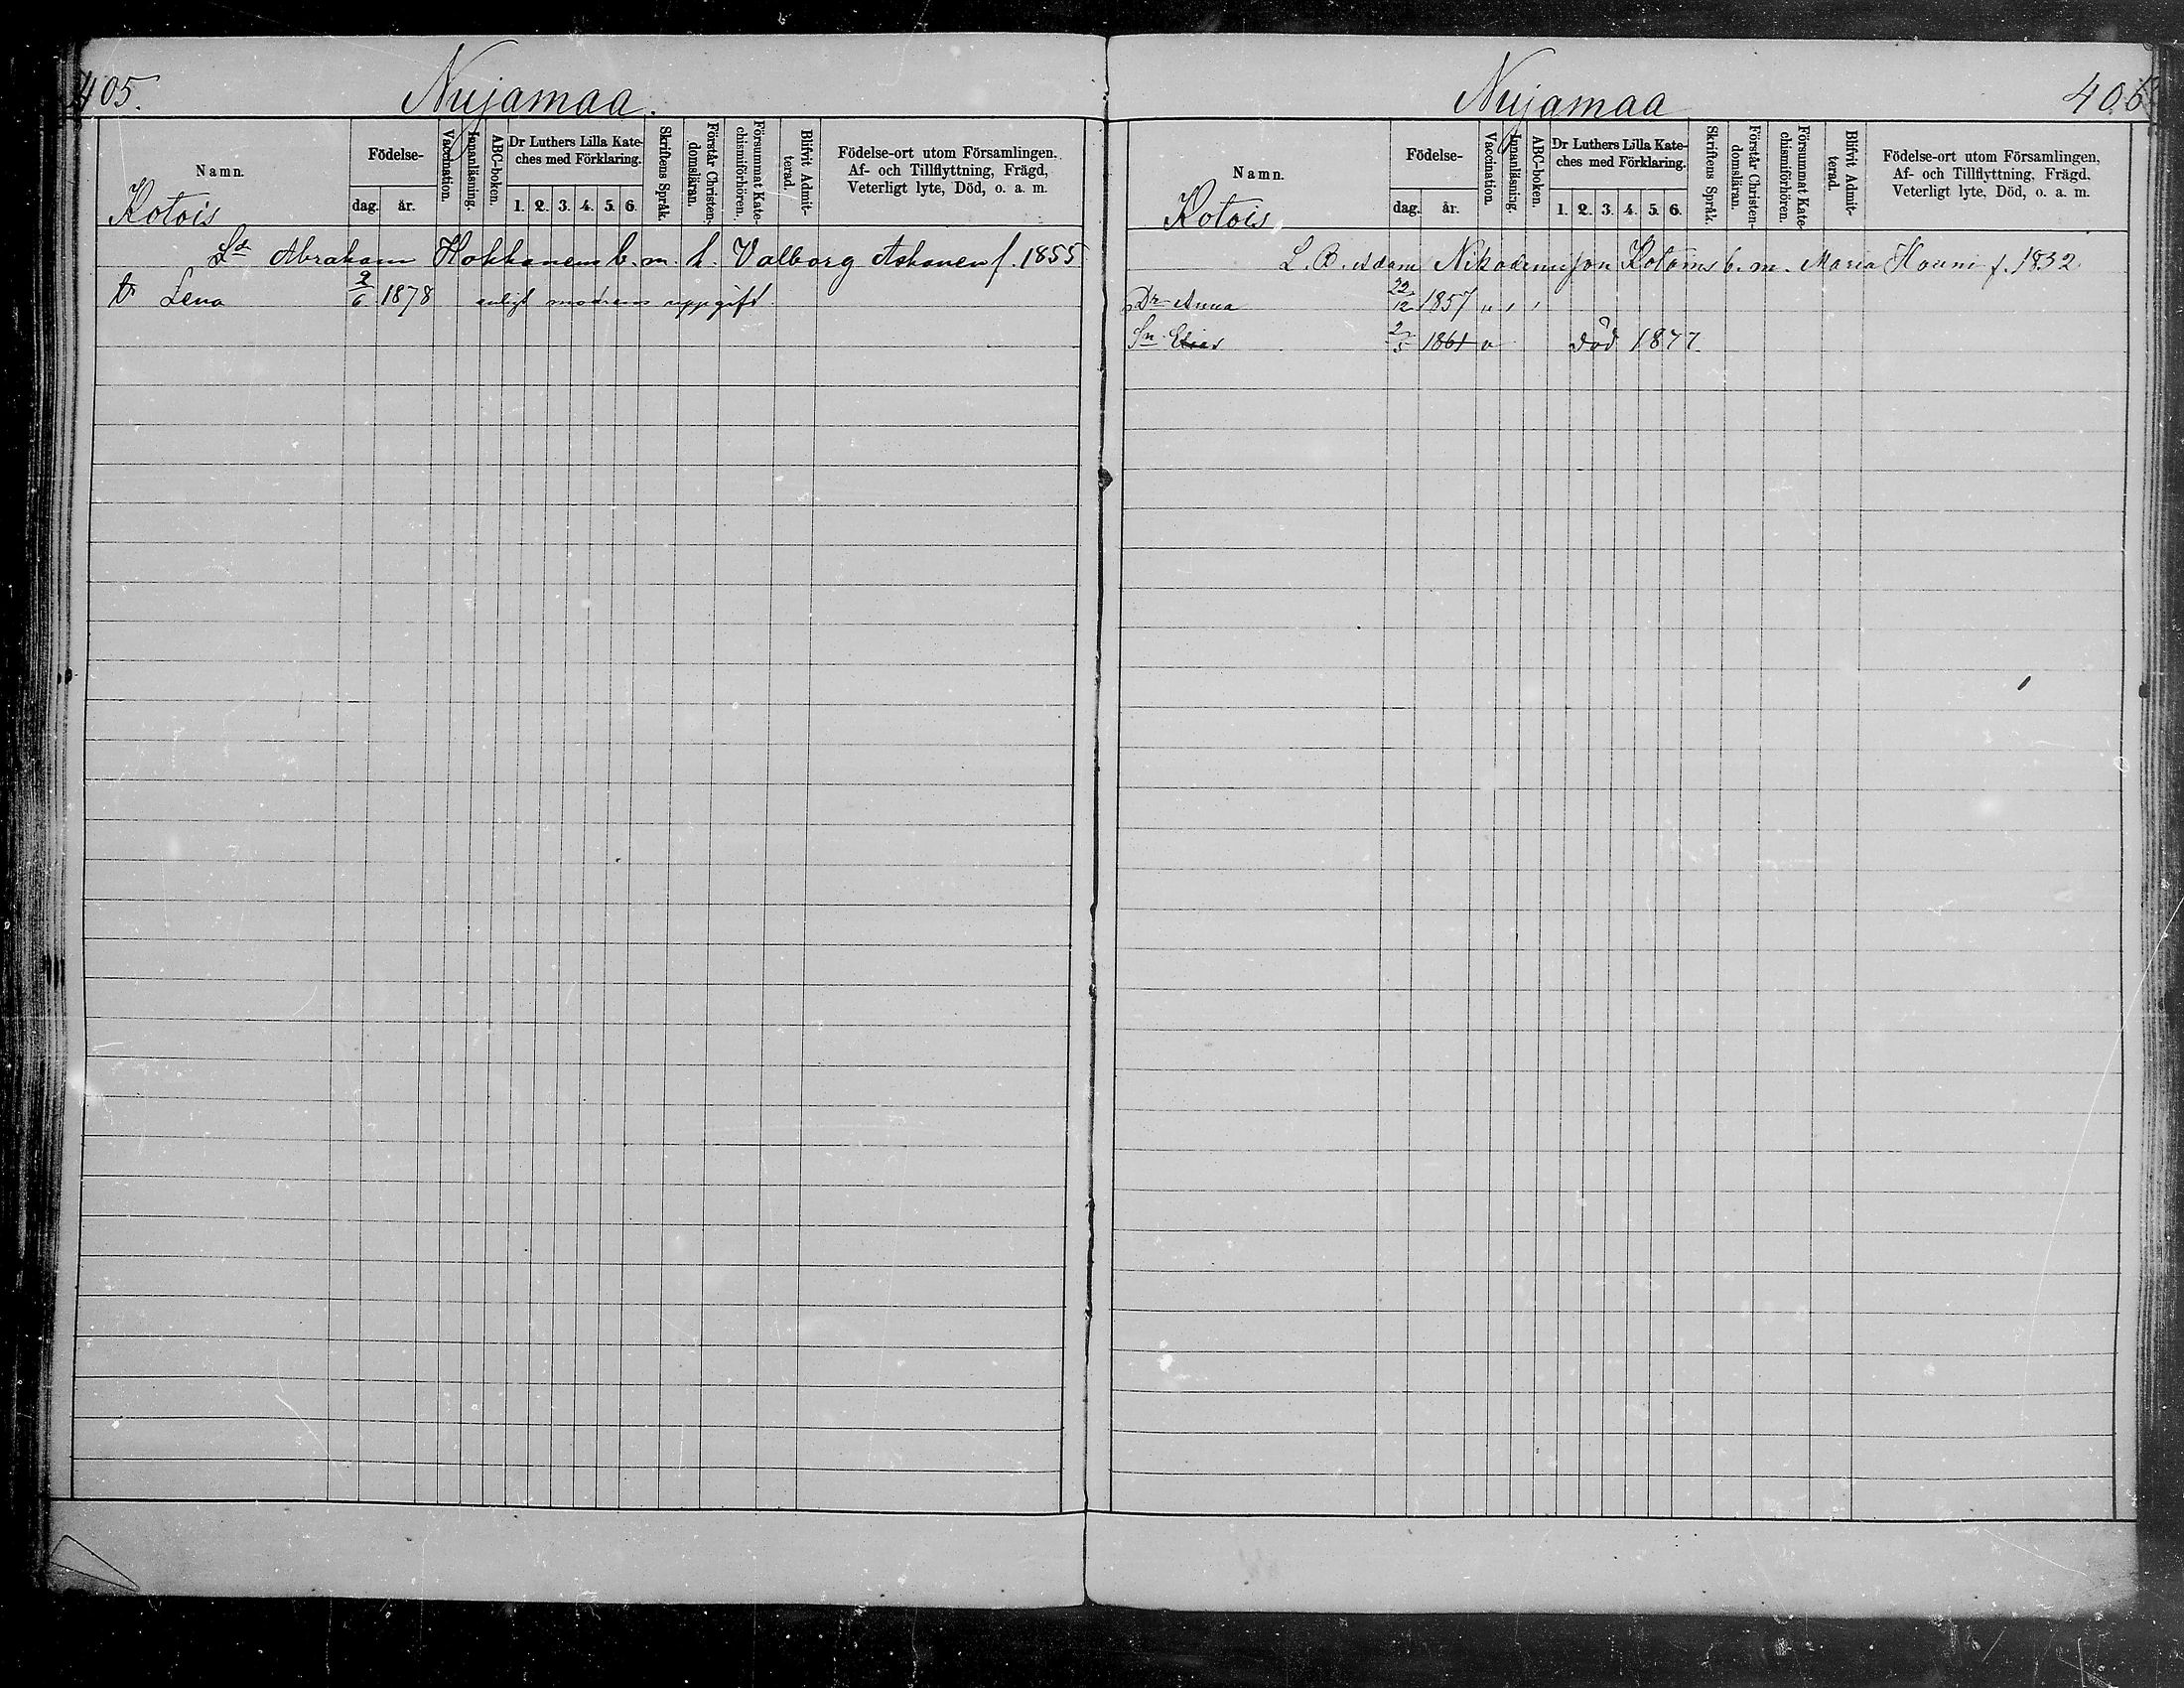 405.
Nujamaa.
Namn.
Kotois
Födelse-
dag.
år.
Vaccination.
Innanläsning.
ABC-boken.
Dr Luthers Lilla Kate-
ches med Förklaring.
1. 2. 3. 4. 5. 6.
Skriftens Språk.
Förstår Christen-
domsläran.
Försummat Kate-
chismiförhören.
Blifvit Admit-
terad.
Födelse-ort utom Församlingen.
Af- och Tillflyttning, Frägd,
Veterligt lyte, Död, o. a. m.
Abraham Hokkanens b. m. h. Valborg Askanen f. 1855
Dr Lena 2/6 1878 enligt modrens uppgift.
Nujamaa
406
Namn.
Kotois
Födelse-
dag.
år.
Vaccination.
Innanläsning.
ABC-boken.
Dr Luthers Lilla Kate-
ches med Förklaring.
1. 2. 3. 4. 5. 6.
Skriftens Språk.
Förstår Christen-
domsläran.
Försummat Kate-
chismiförhören.
Blifvit Admit-
terad.
Födelse-ort utom Församlingen,
Af- och Tillflyttning, Frägd.
Veterligt lyte, Död, o. a. m.
L. B. Adam Nikodemusson Kotoins b. m. Maria Houni f. 1832
Dr Anna 22/12 1857 " , ,
Sn Elias 2/5 1861 v död 1877